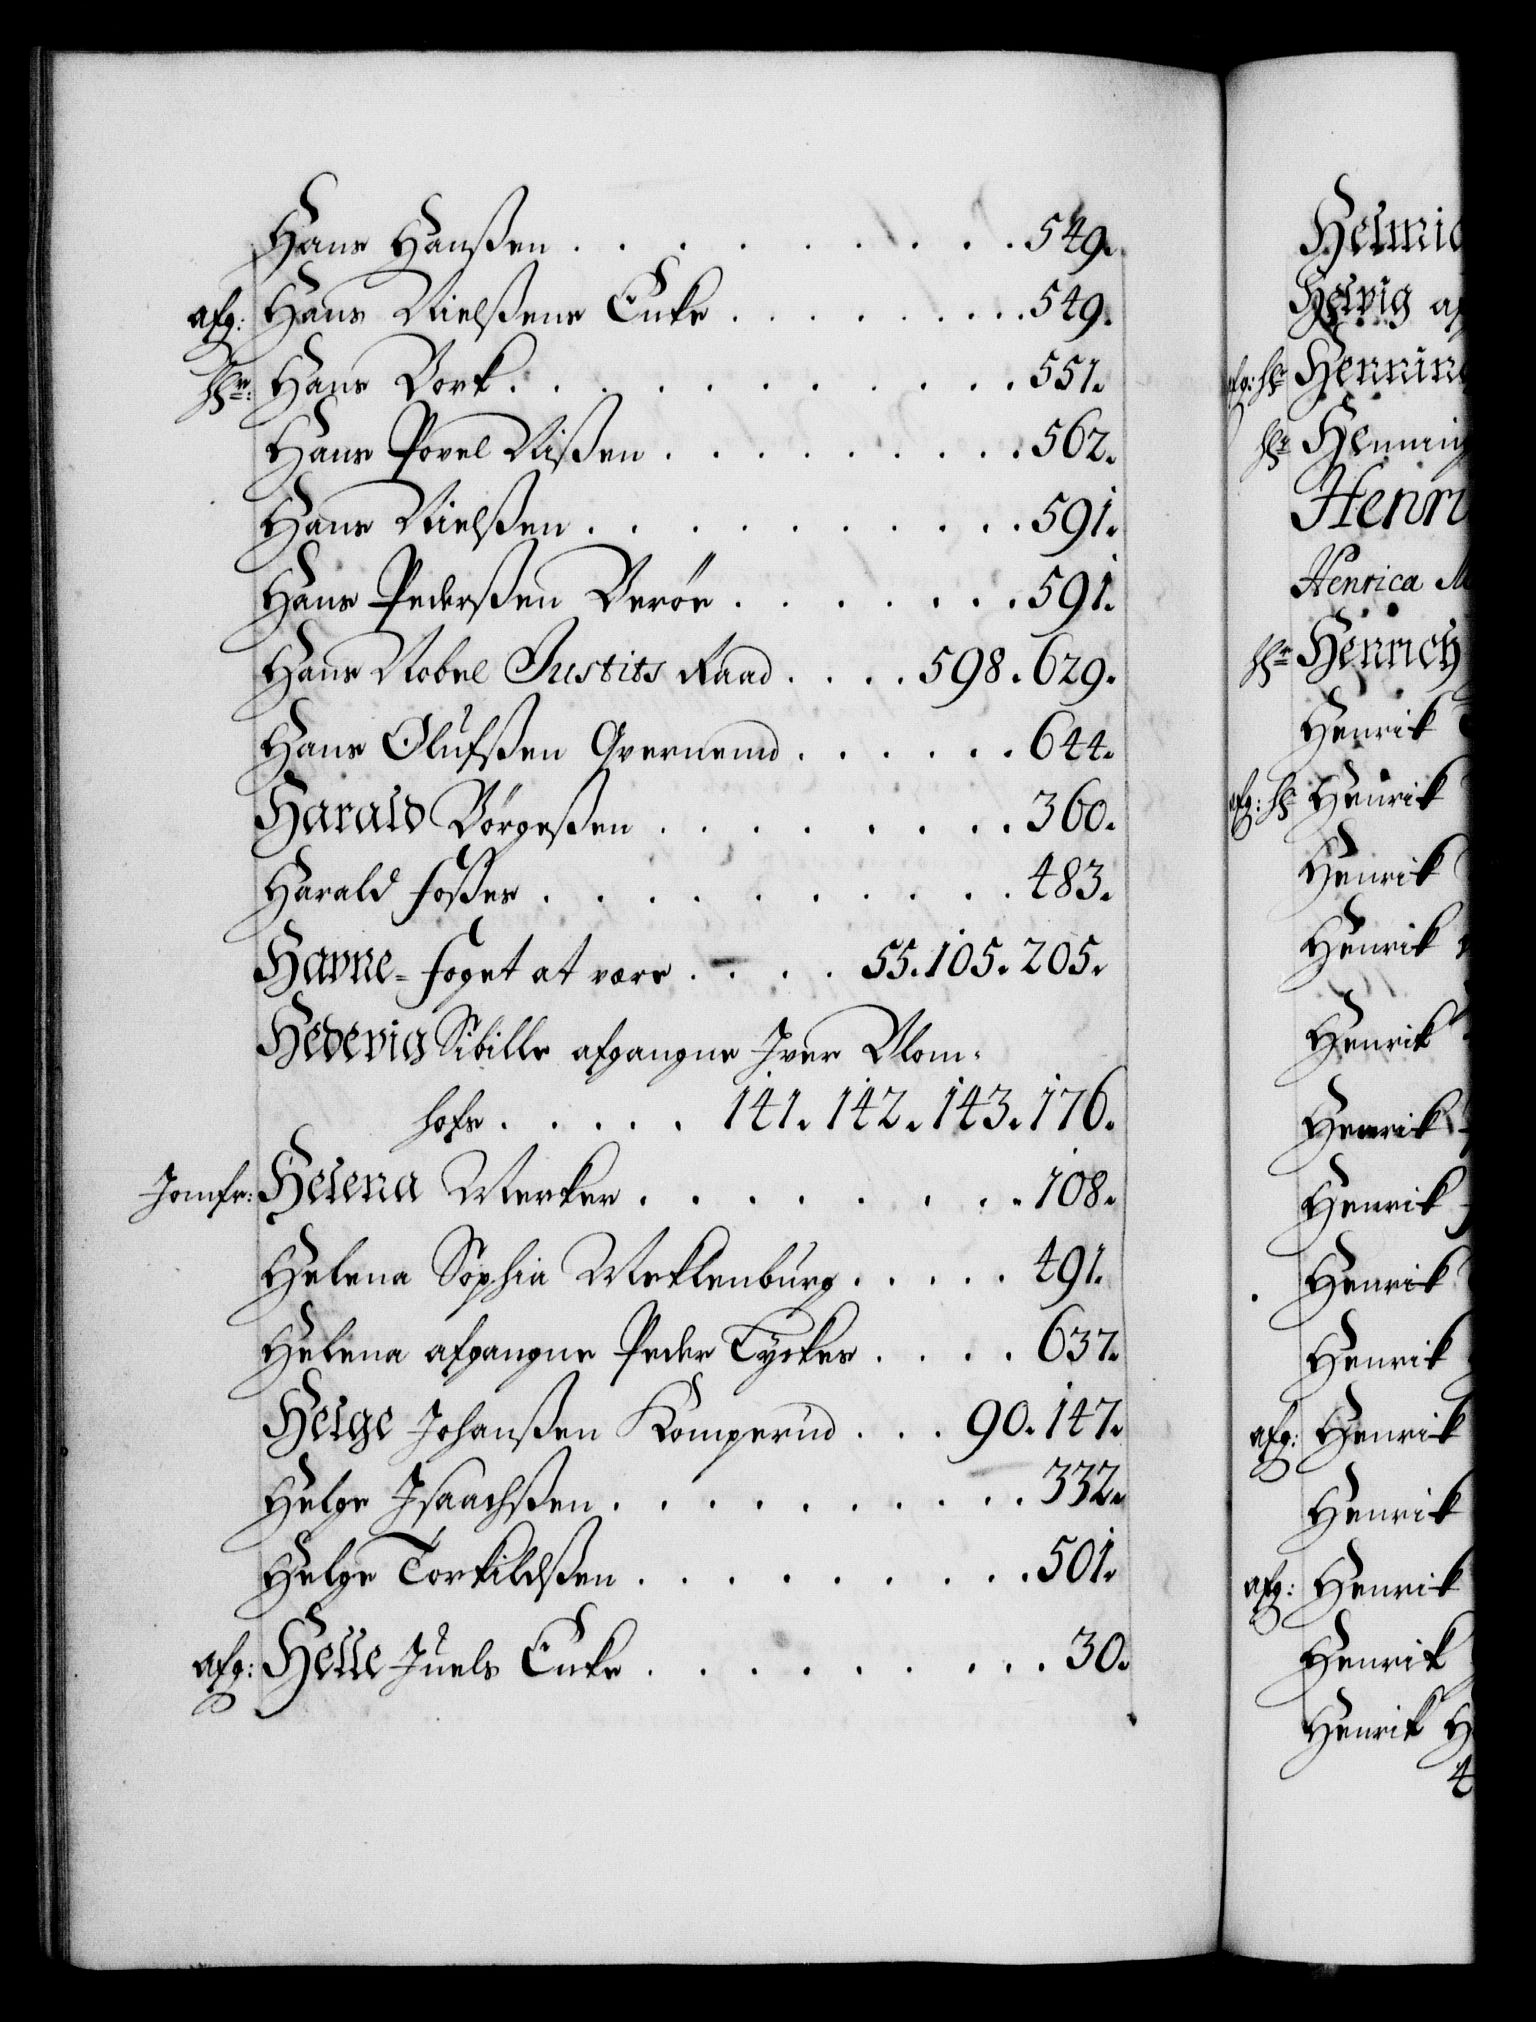 Hans Hanßen . . . . . . . . . 549.
afg: Hans Nielßens Enke . . . . . . . . 549.
Hr: Hans Bork . . . . . . . . . . 551.
Hans Povel Nißen . . . . . . . . 562.
Hans Nielßen . . . . . . . . . 591.
Hans Pederßen Verøe . . . . . . . 591.
Hans Nobel Justits Raad . . . . 598. 629.
Hans Olufßen Qvernemo . . . . . . 644.
Harald Børgeßen . . . . . . . . 360.
Harald Foßes . . . . . . . . . 483.
Havne-Foget at være . . . . 55. 105. 205.
Hedevig Sibille afgangne Iver Blom-
hofs . . . . . 141. 142. 143. 176.
Jomfr: Helena Merker . . . . . . . . 108.
Helena Sophia Meklenburg . . . . . 491.
Helena afgangne Peder Tyrkes . . . . 637.
Helge Johanßen Komperud . . . 90. 147.
Helge Isaachßen . . . . . . . . . 332.
Helge Torkildßen . . . . . . . . . 501.
afg: Helle Juels Enke . . . . . . . . . 30.
Helvig
afg: Hr
Hr
Henrica
Hr Henrich
Henrik
afg: Hr Henrik
Henrik
Henrik
Henrik
Henrik
Henrik
Henrik
Henrik
afg: Henrik
Henrik
afg: Henrik
Henrik
Henrik